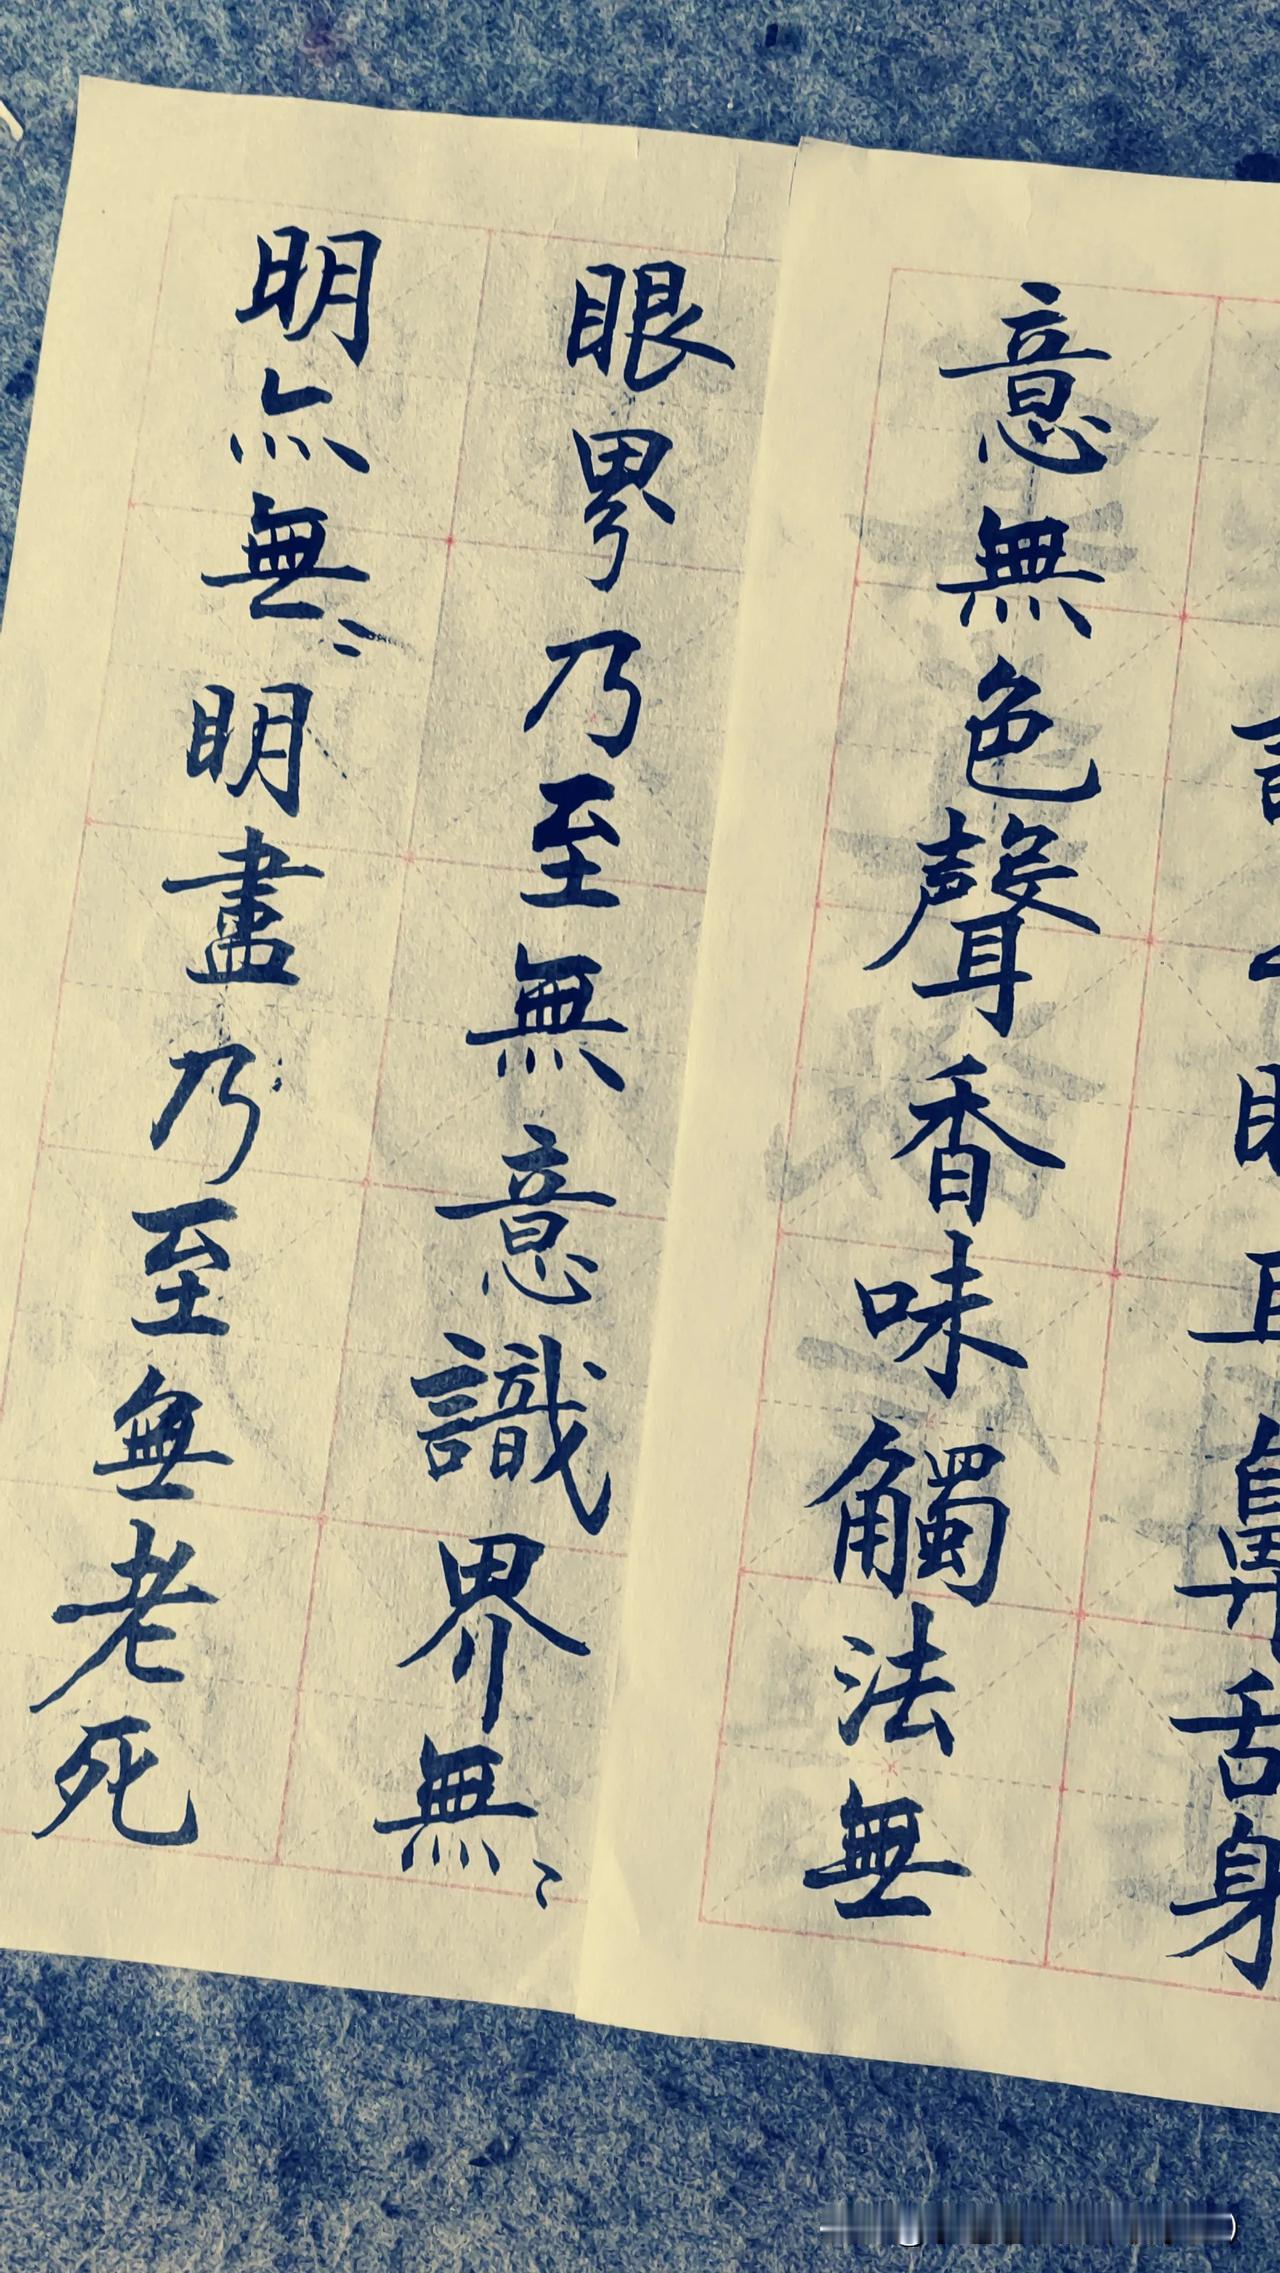 眼耳鼻舌身
意無色聲香味觸法無
眼界乃至無意識界無〻
明亦無〻明盡乃至無老死